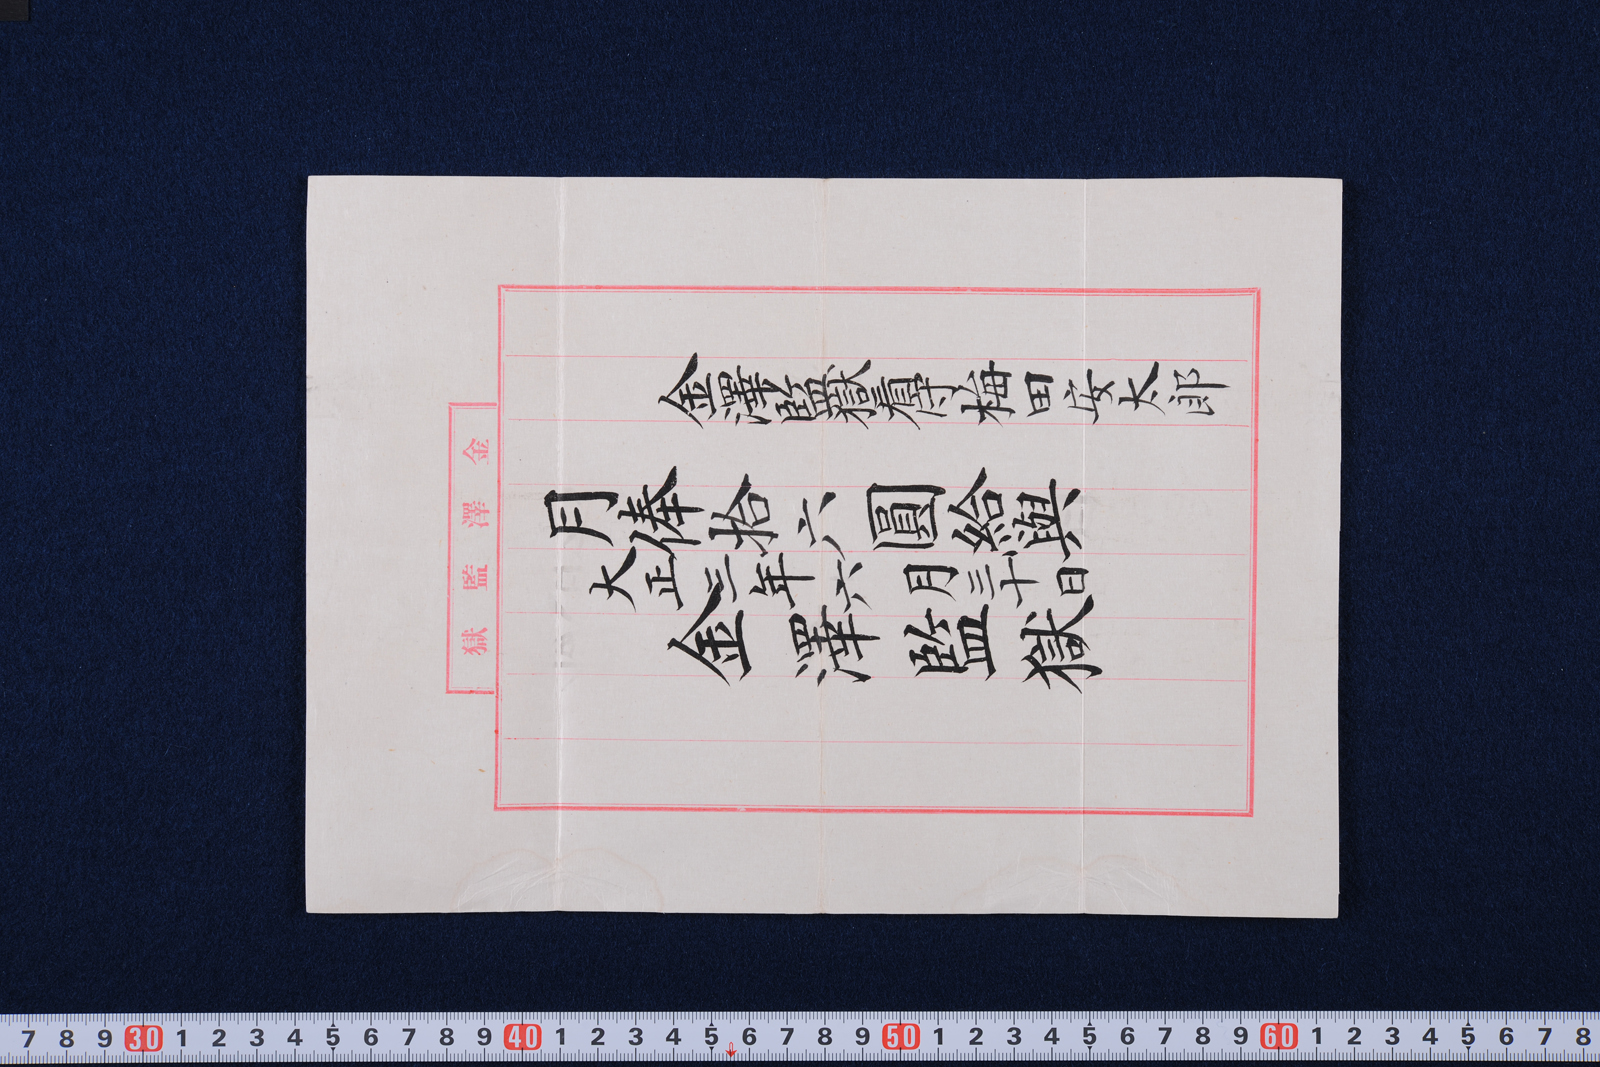 金澤監獄看守梅田安太郎
月俸拾六圓給與
大正三年六月三十日
金澤監獄
金澤監獄
7 8 9 30 1 2 3 4 5 6 7 8 9 40 1 2 3 4 5 6 7 8 9 50 1 2 3 4 5 6 7 8 9 60 1 2 3 4 5 6 7 8